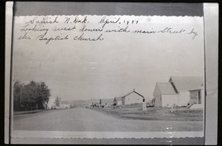 N. Dak. April, 1951
Looking west down with main Street by
the Baptist church